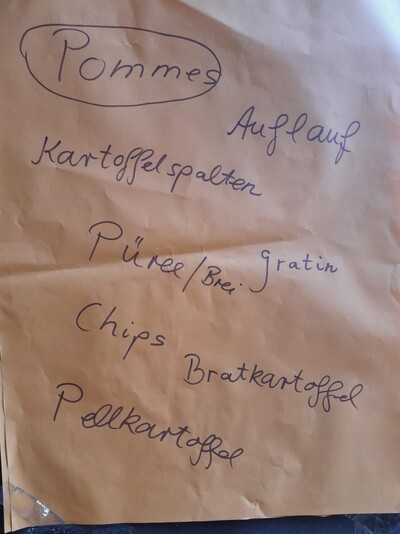 Pommes
Auflauf
Kartoffelspalten
Püree/Brei
gratin
Chips
Bratkartoffel
Pellkartoffel